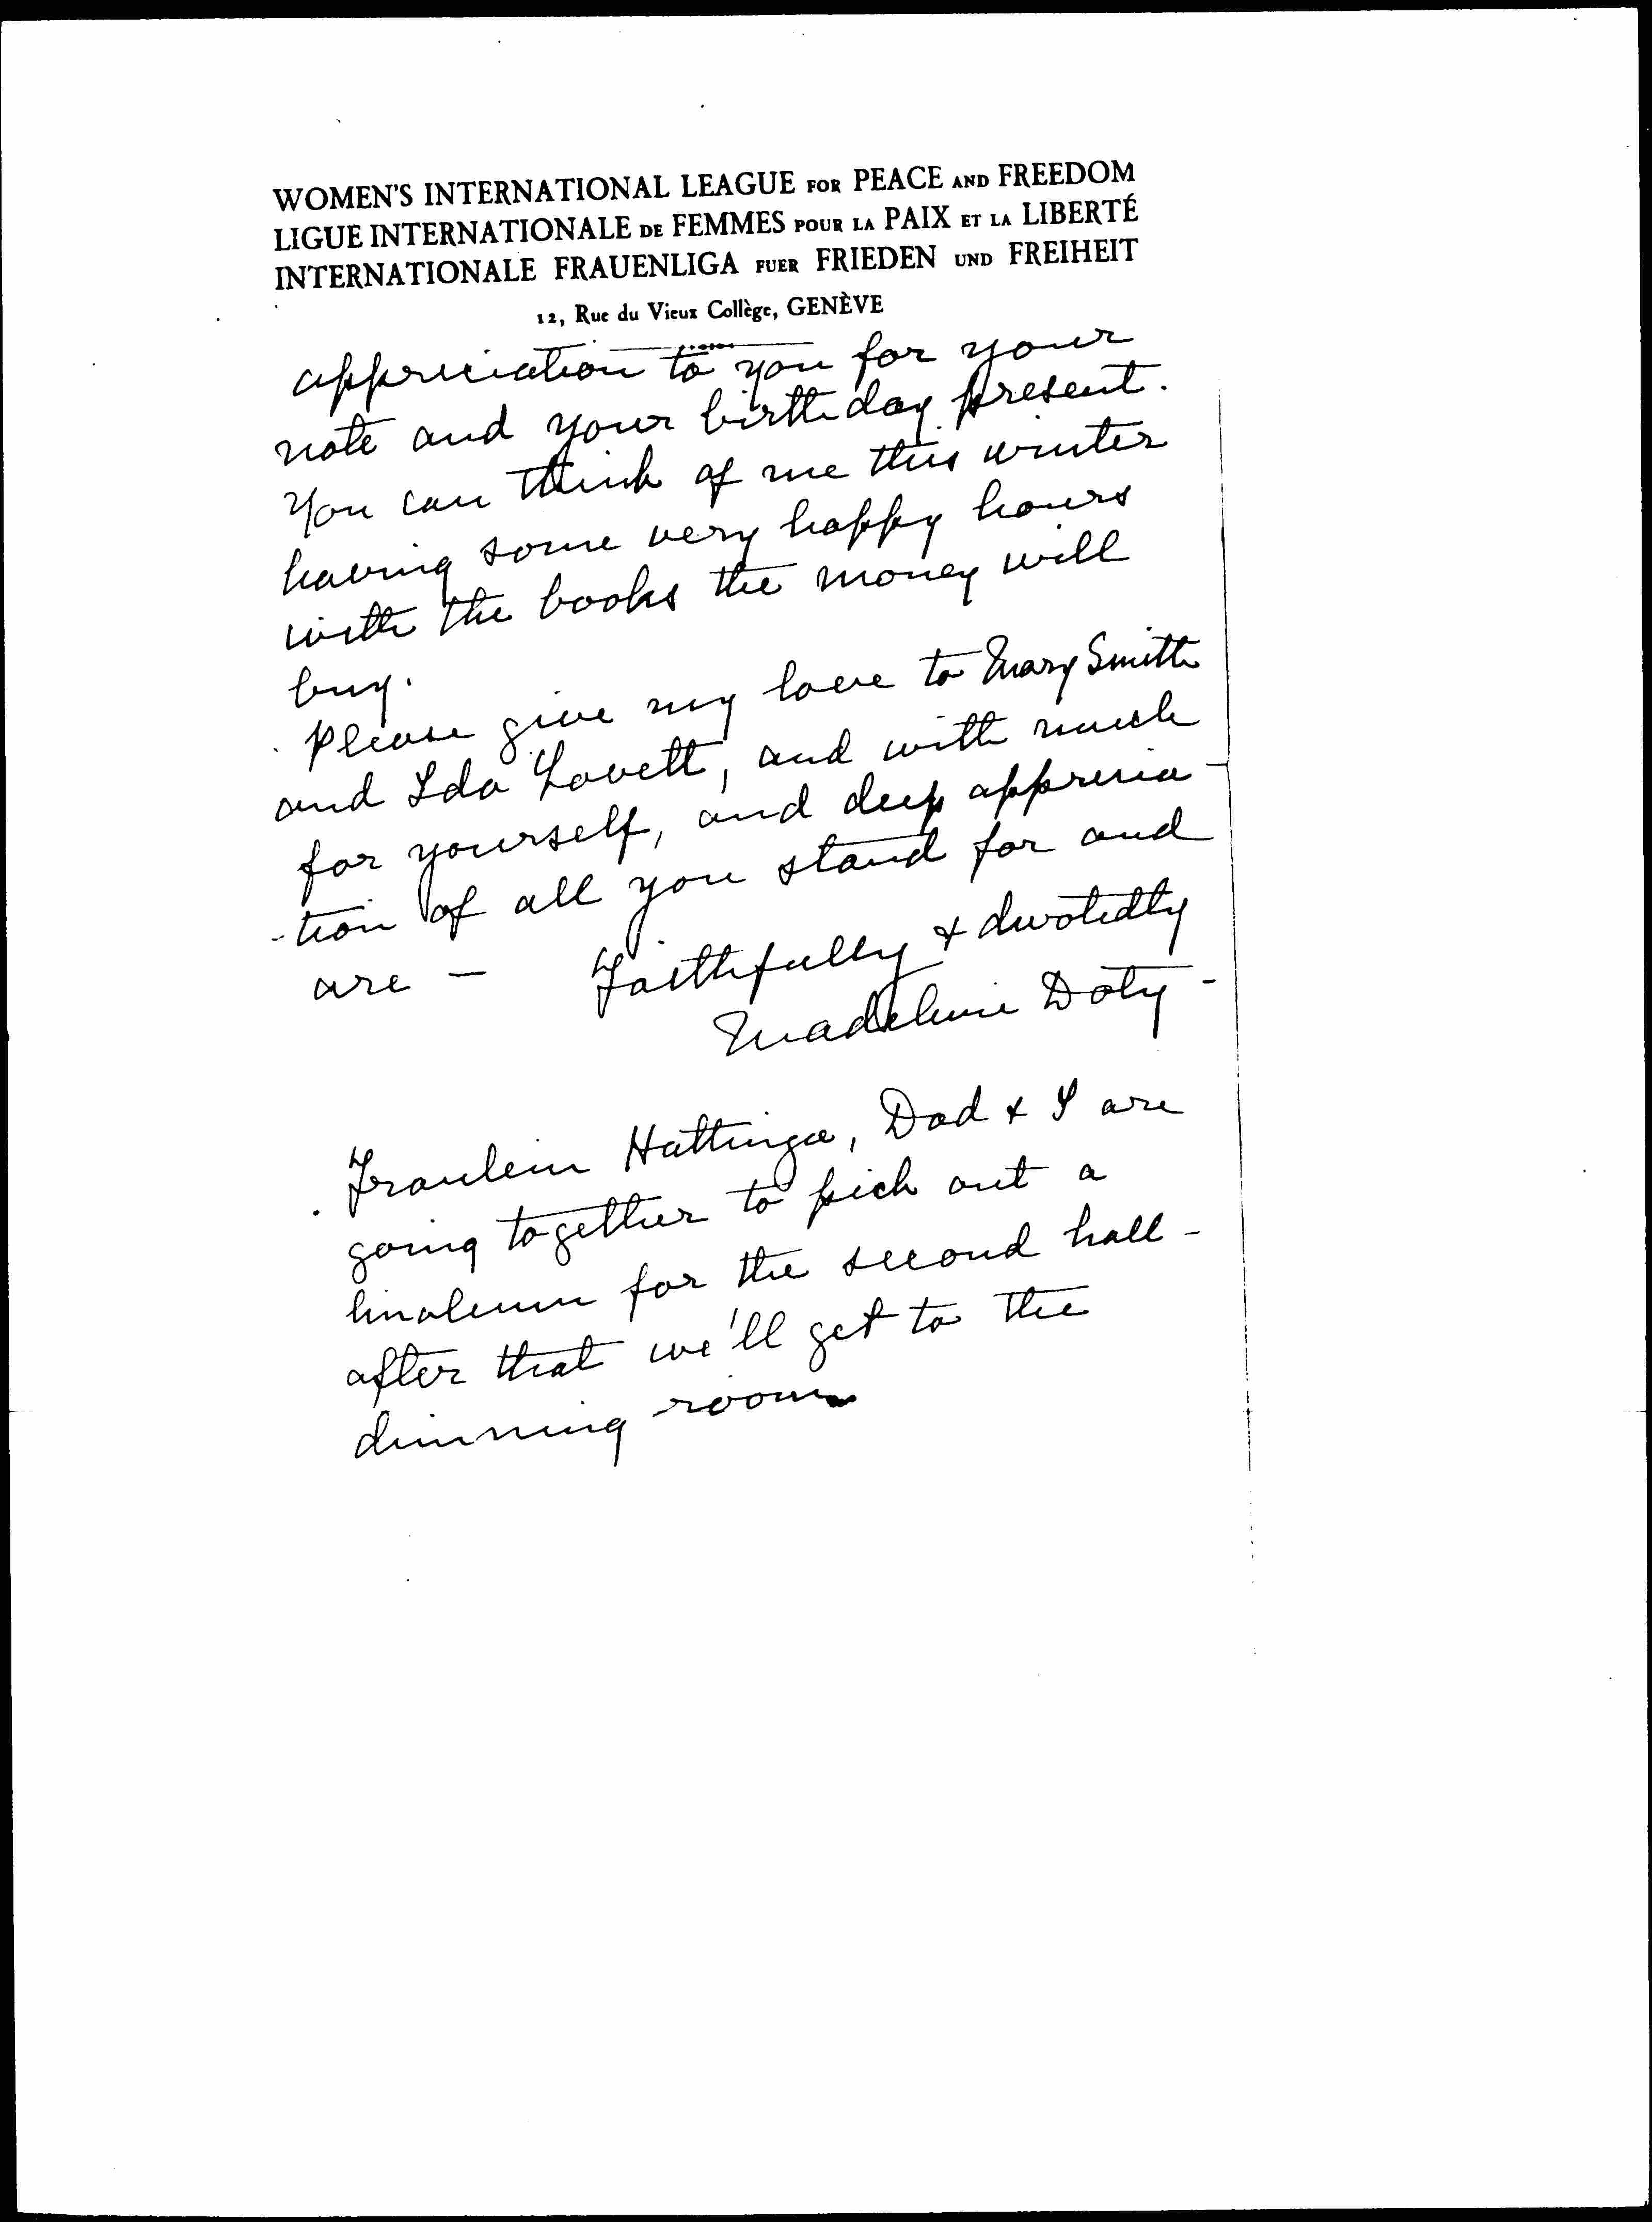 WOMEN'S INTERNATIONAL LEAGUE FOR PEACE AND FREEDOM
LIGUE INTERNATIONALE DE FEMMES POUR LA PAIX ET LA LIBERTÉ
INTERNATIONALE FRAUENLIGA FUER FRIEDEN UND FREIHEIT
12, Rue du Vieux Collège, GENÈVE
appreciation to you for your
note and your birthday present.
You can think of me this winter
having some very happy hours
with the books the money will
buy.
Please give my love to Mary Smith
and Ida Lovett, and with much
for yourself, and deep apprecia
-tion of all you stand for and
are –
Faithfully & devotedly
Madeleine Doty –
Fraulein Hattinga, Dad & I are
going together to pick out a
linoleum for the second hall –
after that we'll get to the
dinning room